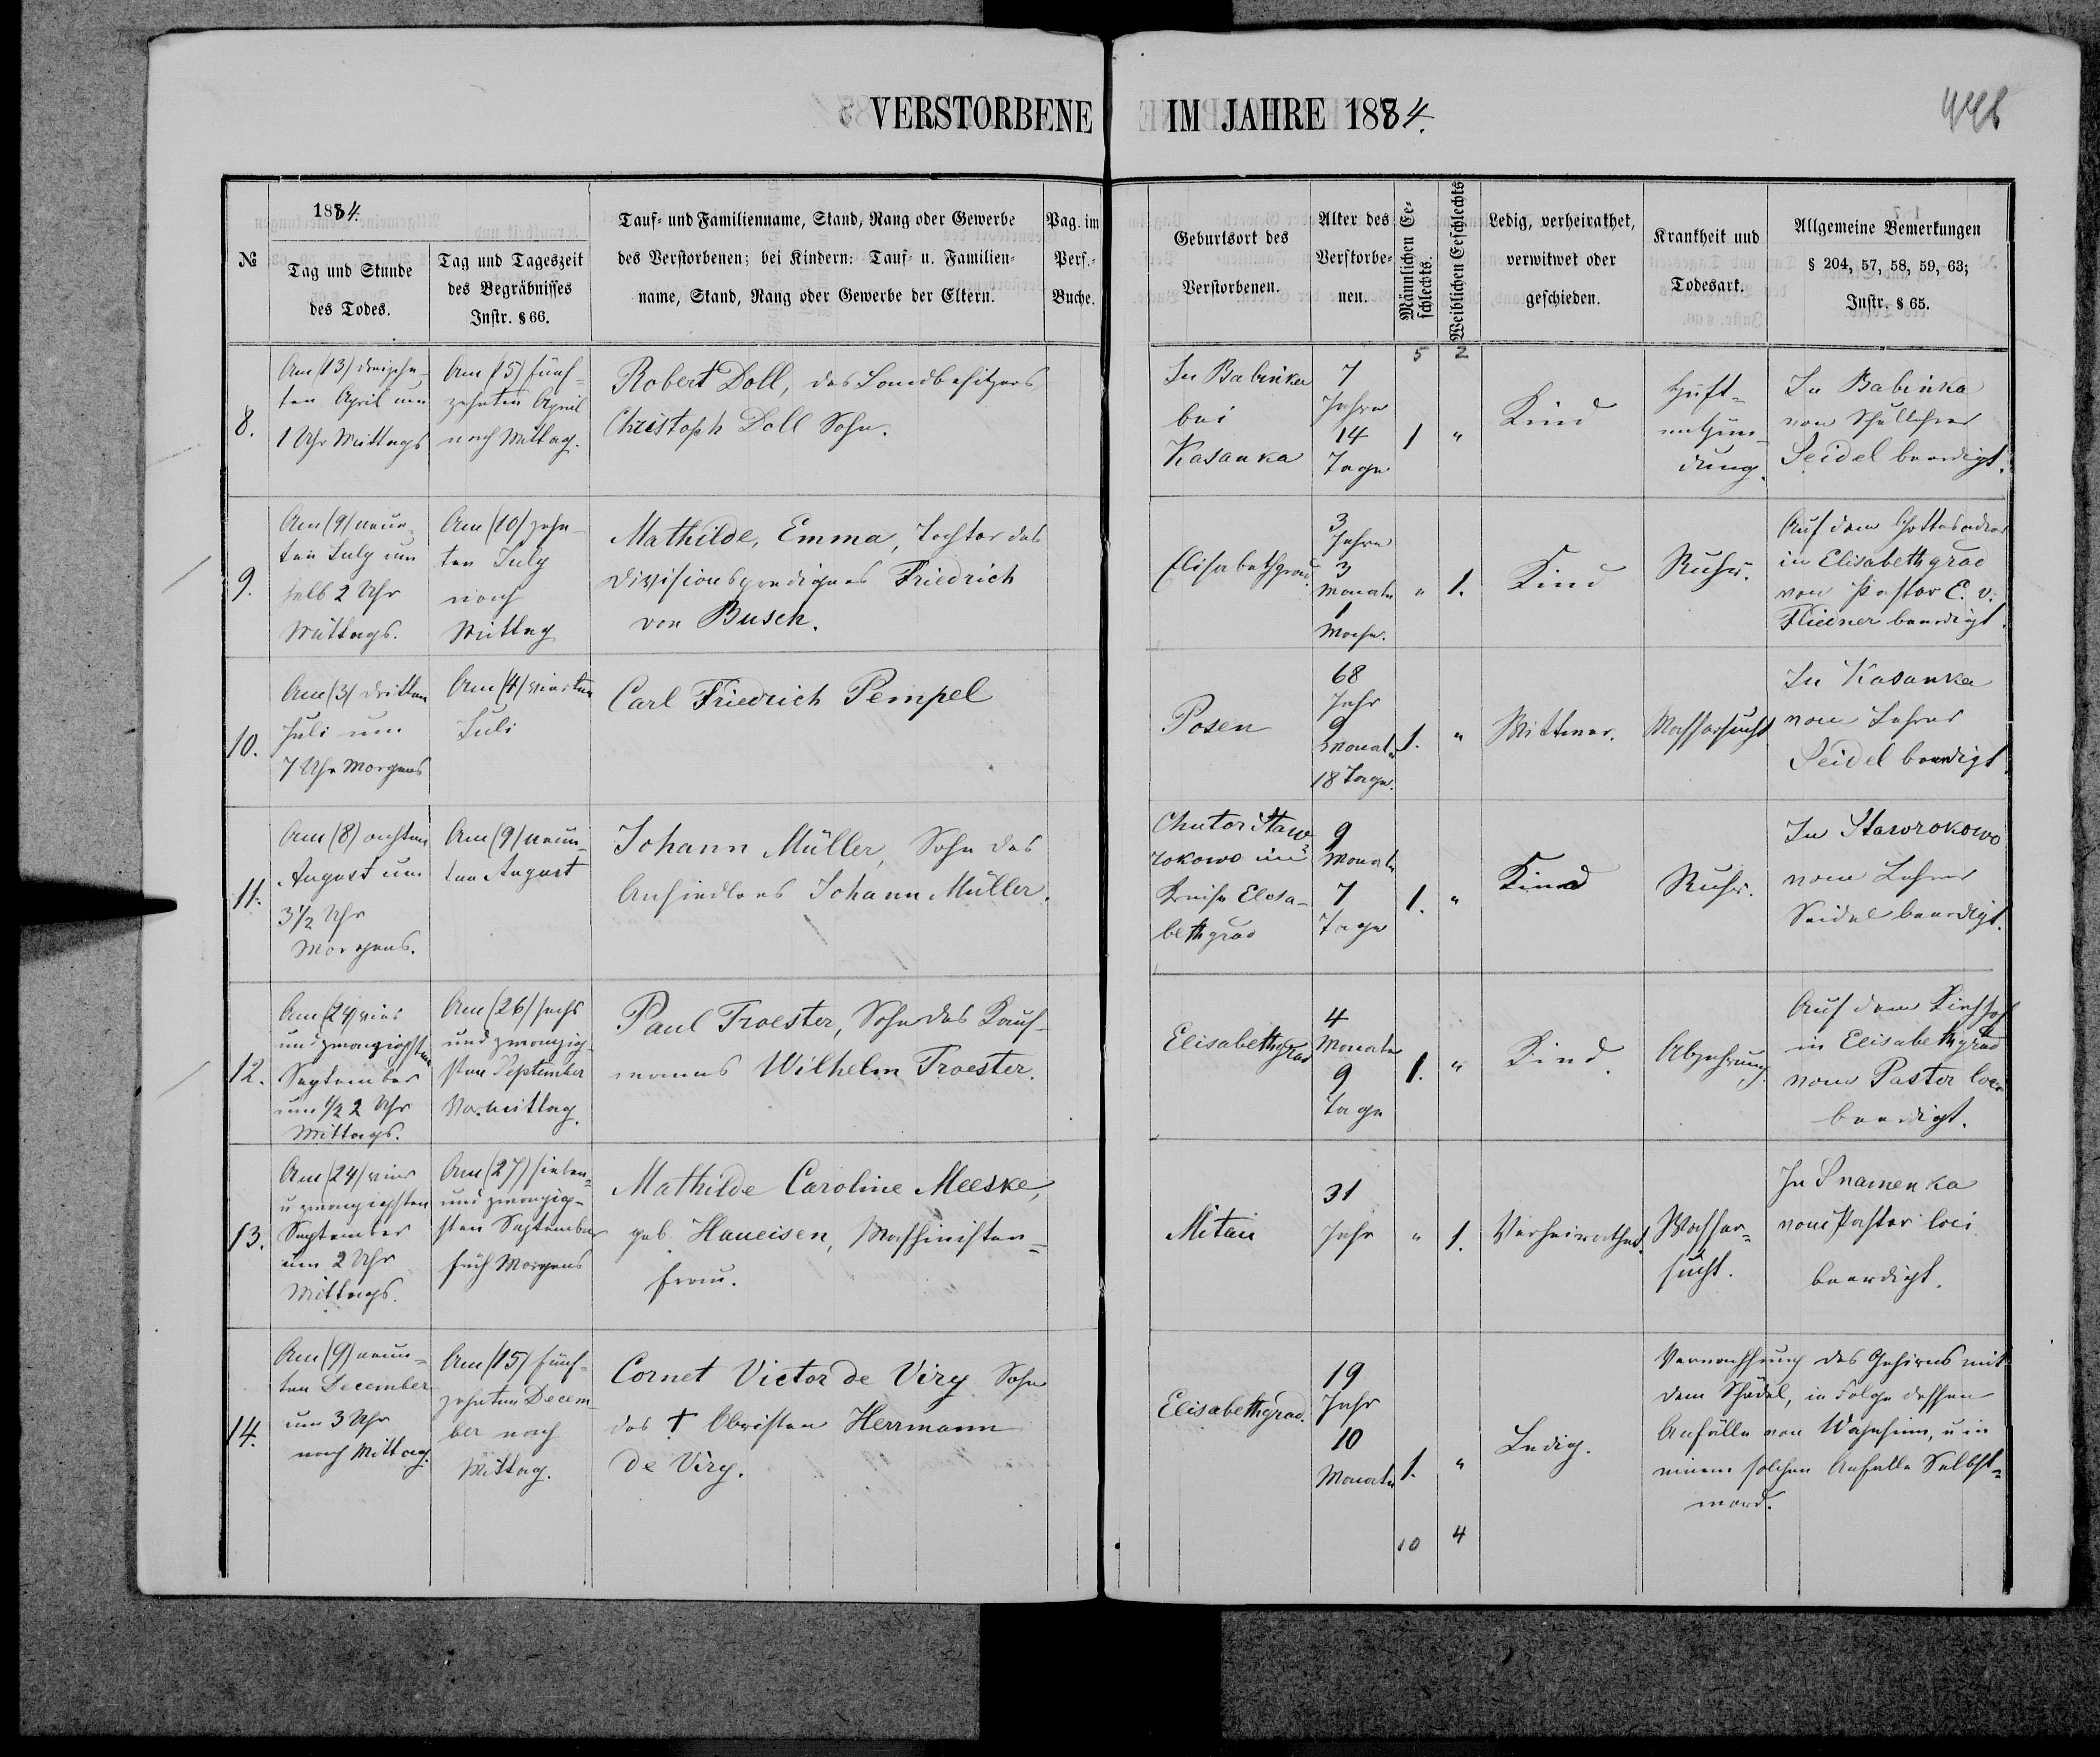 VERSTORBENE IM JAHRE 1884.
446
1884.
№
Tag und Stunde
des Todes.
Tag und Tageszeit
des Begräbnisses
Instr. § 66.
Tauf- und Familienname, Stand, Rang oder Gewerbe
des Verstorbenen; bei Kindern: Tauf- u. Familien-
name, Stand, Rang oder Gewerbe der Eltern.
Pag. im
Pers.-
Buche.
Geburtsort des
Verstorbenen.
Alter des
Verstorbe-
nen.
Männlichen Ge-
schlechts.
Weiblichen Geschlechts
Ledig, verheirathet,
verwitwet oder
geschieden.
Krankheit und
Todesart.
Allgemeine Bemerkungen
§ 204, 57, 58, 59, 63;
Instr. § 65.
5 2
8.
Am (13) dreizehn-
ten April um
1 Uhr Mittags
Am (15) fünf-
zehnten April
nach Mittag.
Robert Doll, des Landbesitzers
Christoph Doll Sohn.
In Babinka
bei
Kasanka
7
Jahre
14
Tage
1 "
Kind
Hüft-
entzün-
dung.
In Babinka
von Schullehrer
Seidel beerdigt.
9.
Am (9) neun-
ten July um
halb 2 Uhr
Mittags.
Am (10) zehn-
ten July
nach
Mittag
Mathilde, Emma, Tochter des
Divisionspredigers Friedrich
von Busch.
Elisabethgrad.
3
Jahre
3
Monate
1
Woche.
" 1.
Kind
Ruhr.
Auf dem Gottesacker
in Elisabethgrad
von Pastor C. v.
Fliedner beerdigt.
10.
Am (3) dritten
Juli um
7 Uhr Morgens
Am (4) vierten
Juli
Carl Friedrich Pempel
Posen
68
Jahr
9
Monate
18 Tage.
1. "
Wittwer.
Wassersucht
In Kasanka
vom Lehrer
Seidel beerdigt.
11.
Am (8) achten
August um
3½ Uhr
Morgens.
Am (9) neun-
ten August
Johann Müller, Sohn des
Ansiedlers Johann Müller.
Chutor Staw-
rokowo im
Kreise Elisa-
bethgrad
9
Monate
7
Tage
1. "
Kind
Ruhr.
In Stawrokowo
vom Lehrer
Seidel beerdigt.
12.
Am (24) vier
und zwanzigsten
September
um ½ 2 Uhr
Mittags.
Am (26) sechs
und zwanzig-
sten September
Vormittag.
Paul Troester, Sohn des Kauf-
manns Wilhelm Troester.
Elisabethgrad
4
Monate
9
Tage
1. "
Kind.
Abzehrung.
Auf dem Kirchhof
in Elisabethgrad
vom Pastor loci
beerdigt.
13.
Am (24) vier
u zwanzigsten
September
um 2 Uhr
Mittags.
Am (27) sieben-
und zwanzig-
sten September
früh Morgens
Mathilde Caroline Meeske,
geb. Haueisen, Maschinisten-
frau.
Mitau
31
Jahr
" 1.
Verheirathet.
Wasser-
sucht.
In Snamenka
vom Pastor loci
beerdigt.
14.
Am (9) neun-
ten December
um 3 Uhr
nach Mittag.
Am (15) fünf-
zehnten Decem
ber nach
Mittag.
Cornet Victor de Viry Sohn
des † Obristen Herrmann
de Viry.
Elisabethgrad.
19
Jahr
10
Monate
1. "
Ledig.
Verwachsung des Gehirns mit
dem Schädel, in Folge dessen
Anfälle von Wahnsinn, u in
einem solchen Anfalle Selbst-
mord.
10 4